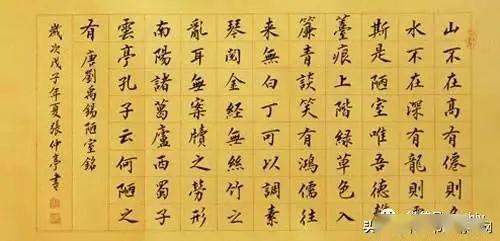 山不在高有僊則名
水不在深有龍則靈
斯是陋室唯吾德馨
薹痕上階綠草色入
簾青談笑有鴻儒往
来無白丁可以調素
琴閱金經無絲竹之
亂耳無案牘之勞形
南陽諸葛廬西蜀子
雲亭孔子云何陋之
有 唐劉禹錫陋室銘
歲次戊子年夏張仲亭書